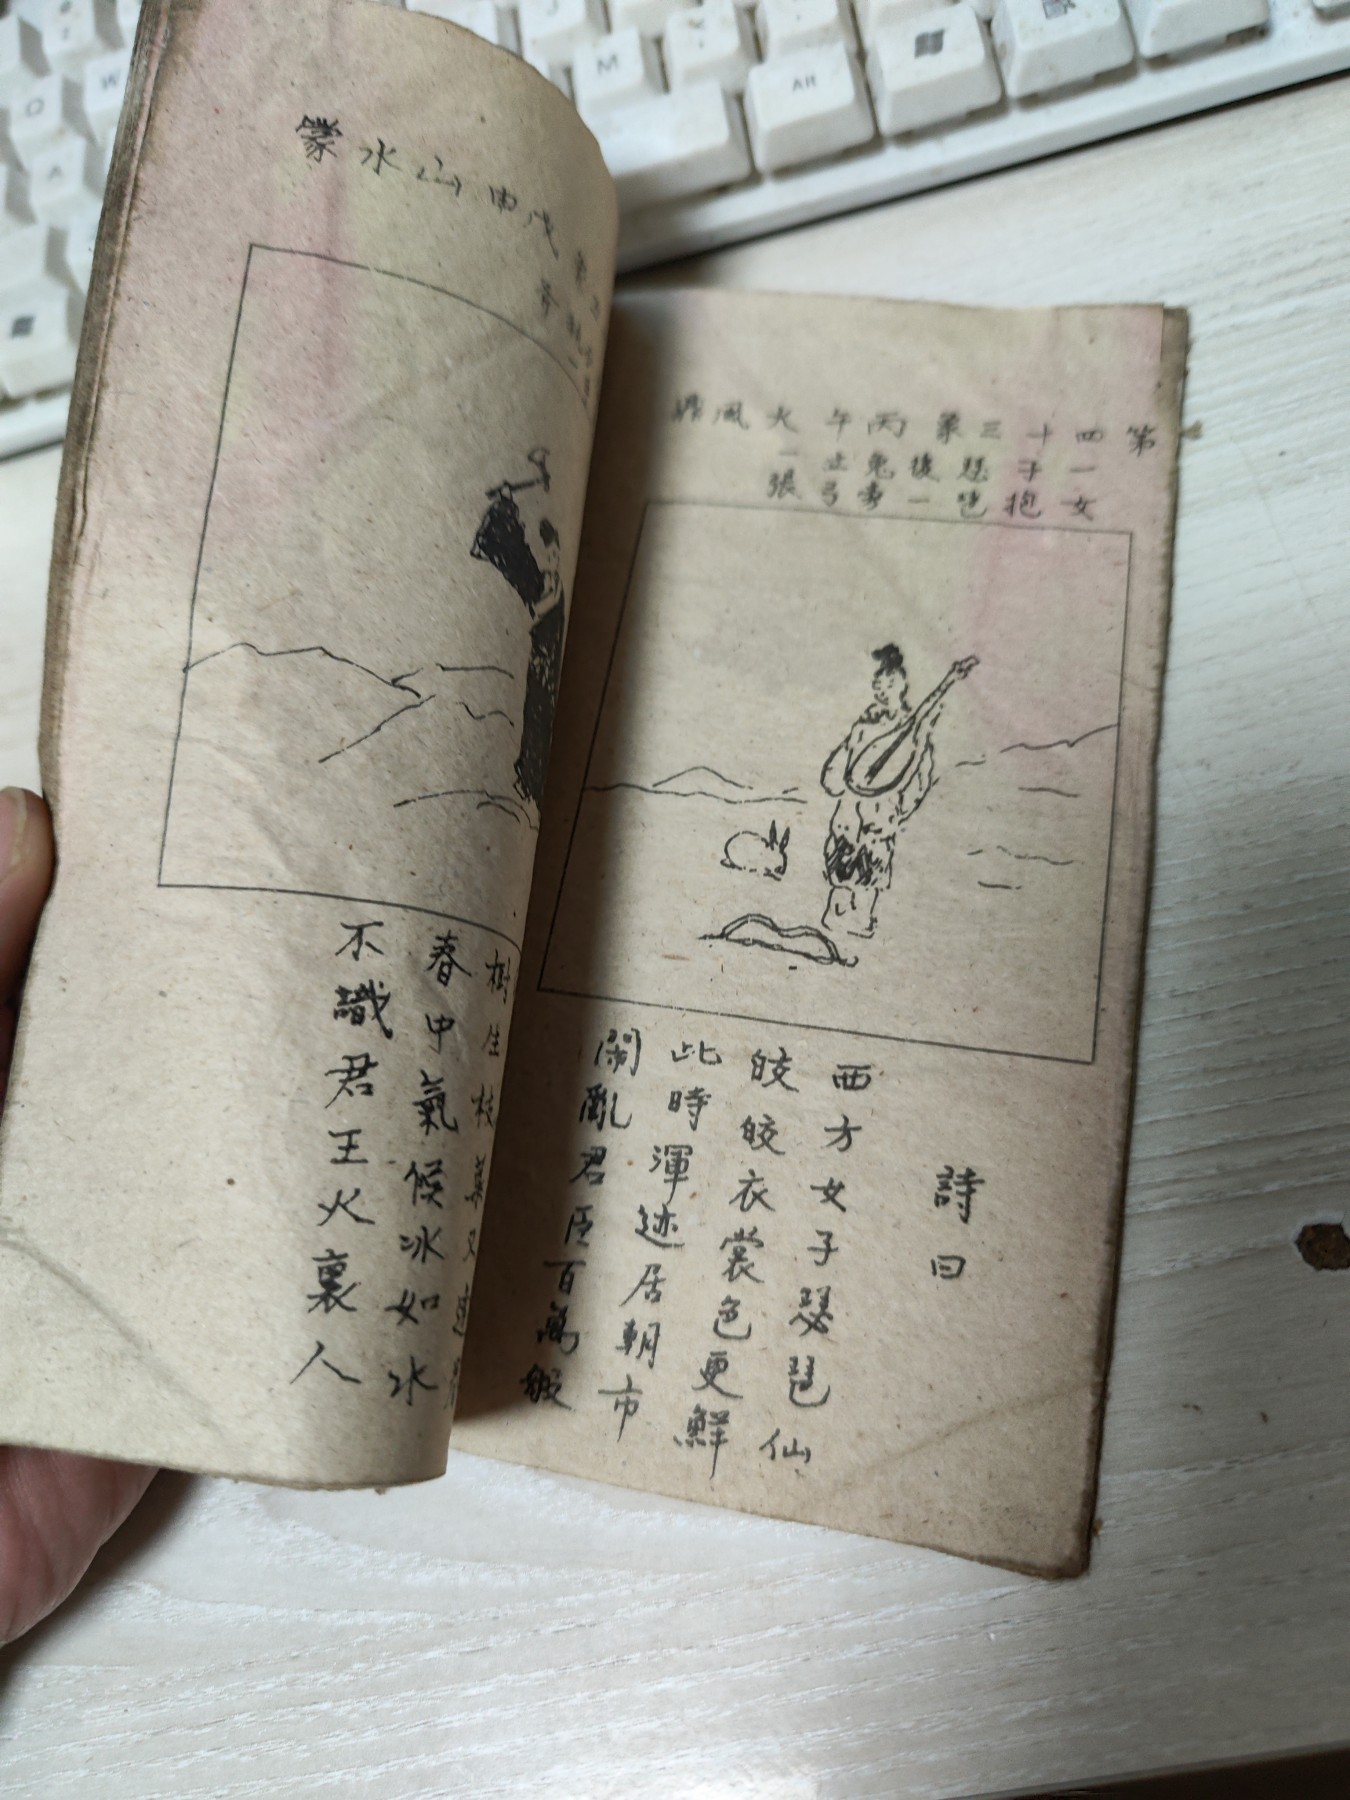 第四十三象丙午火風鼎
一子
女抱琵一旁弓張
詩曰
西方女子琴琶仙
皎皎衣裳色更鮮
此時渾迹居朝市
鬧亂君臣百萬般
戊申山水蒙
樹生枝
春中氣候冰如水
不識君王火裏人
Q
W
A
M
Y
Alt